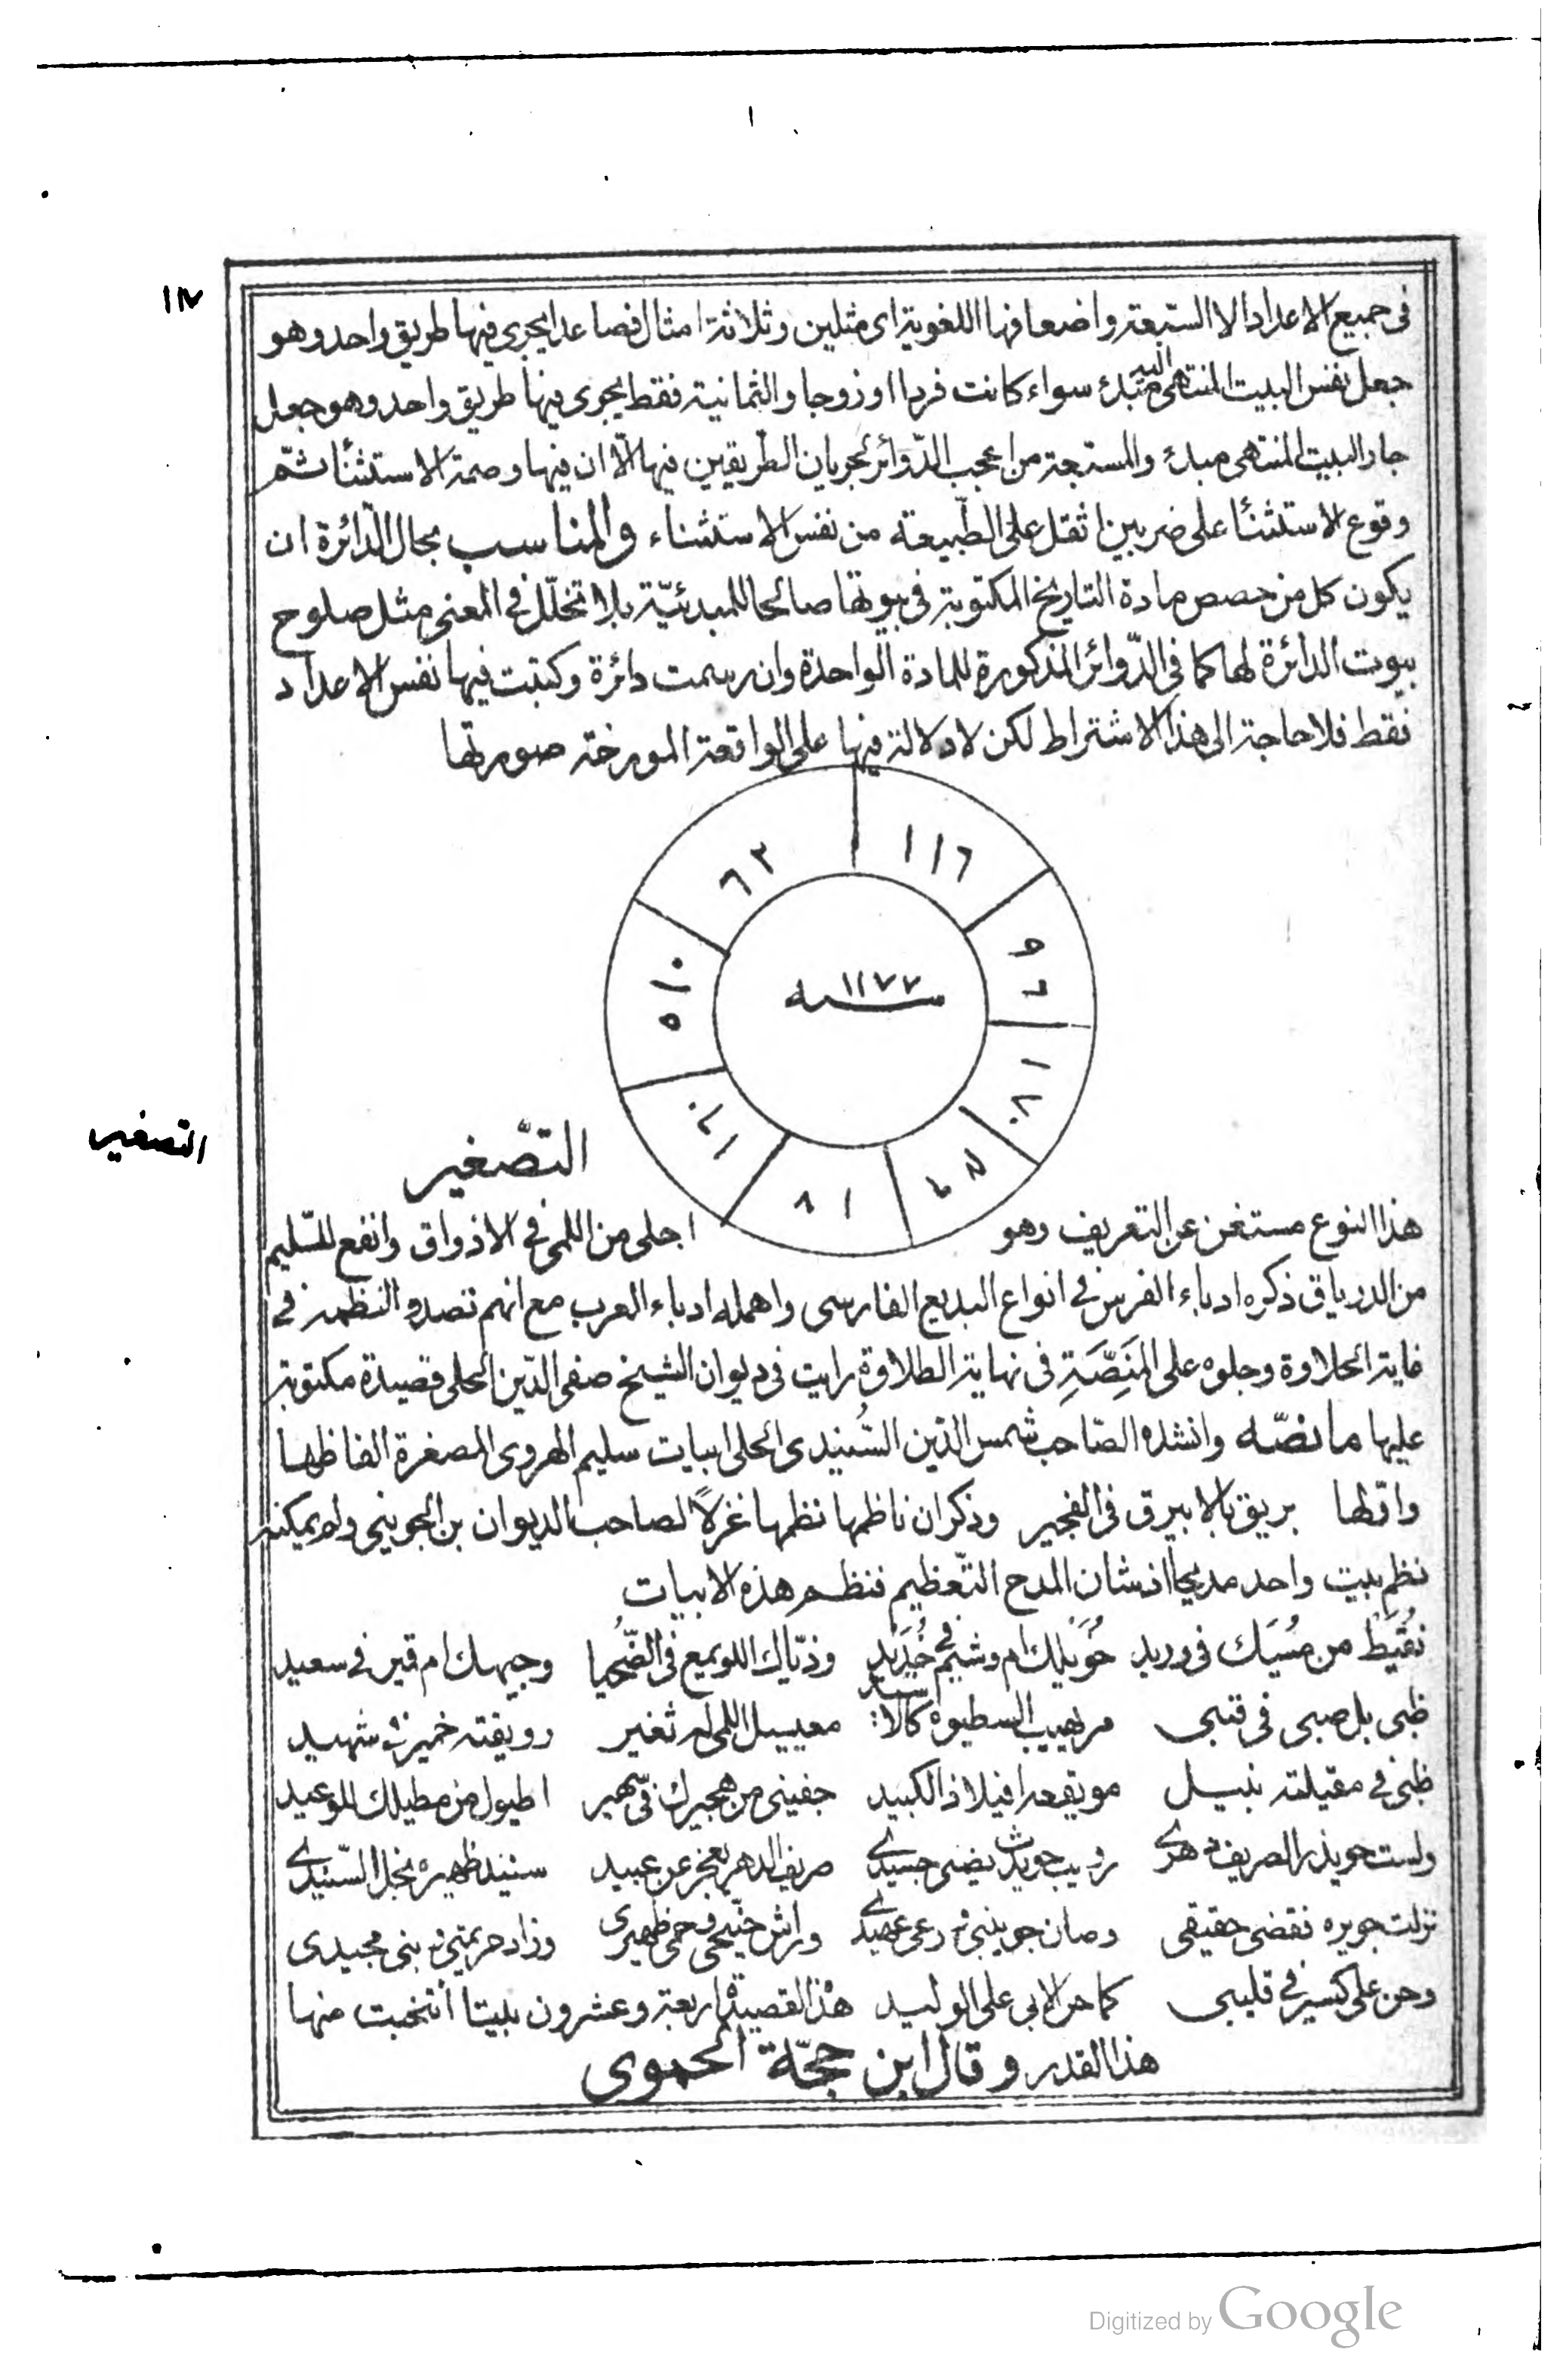 ١١٧
في جميع الاعداد الا السبعة واضعافها اللغوية اى مثلين وثلاثة امثال فصاعدا يجرى فيها طريق واحد وهو
جعل نفس البيت المنتهى اليه مبدئ سواء كانت فردا او زوجا والثمانية فقط يجرى فيها طريق واحد وهو جعل
جار البيت المنتهى مبدئ والسبعة من اعجب الدّوائر لجريان الطّريقين فيها الّا ان فيها وصمة الاستثنأ ثمّ
وقوع الاستثنأ على ضربين اثقل على الطّبيعة من نفس الاستثناء والمناسب بحال الدّائرة ان
يكون كل من حصص مادة التاريخ المكتوبة في بيوتها صالحا للمبدئيّة بلا تخلّل في المعنى مثل صلوح
بيوت الدائرة لها كما فى الدّوائر المذكورة للمادة الواحدة وان رسمت دائرة وكتبت فيها نفس الاعداد
فقط فلا حاجة الى هذا الاشتراط لكن لا دلالة فيها على الواقعة المورخة صورتها
١١٦
٩٦
١٨٠
٨١
٥١٠
٦٢
سنه ١١٧٧
التّصغير
التصغير
هذا النوع مستغن عن التعريف وهو اجلى من اللمى في الاذواق وانفع للسّليم
من الدرياق ذكره ادباء الفرس في انواع البديع الفارسى واهمله ادباء العرب مع انهم تصدو النظمه في
غاية الحلاوة وجلوه على المَنِصَّةِ فى نهاية الطلاوة رايت فى ديوان الشيخ صفى الدّين الحلى قصيدة مكتوبة
عليها ما نصّه وانشده الصّاحب شمس الدّين السُّنيدى الحلى ابيات سليم الهروى المصغرة الفاظها
واوّلها بريق بالابيرق فى الفجير وذكر ان ناظمها نظمها غزلاً لصاحب الديوان بن الجوينى ولم يمكنه
نظم بيت واحد مديحا اذ شان المدح التّعظيم فنظم هذه الابيات
نُقَيط من مُسَيك فى وريد خُوَيلك ام وشيم في خُدَيد وذيّاك اللويمع فى الضُّحيا وجيهك ام قمير في سعيد
ظبى بل صبى فى قبى مريهيب السطيوة كالاسيد معيسيل اللمى له ثغير رويقته خميرة شهيد
ظبى في مقيلته نبيل مويقعه افيلاذ الكبيد جفينى من هجيرك فى سهير اطيول من مطيلك للوعيد
ولست حويذر الصريف دهرى رويب حويدث يضنى جسيدى صريف الدهر يعجز عن عبيد سنيد ظهيره نجل السّنيدى
نزلت جويره فقضى حقيقى وصان جوينبى ورعى عهيدى وراش جنيحى فحمى ظهيرى وزاد حريمتى وبنى مجيدى
وحن على كسير فى قليبى كما حن الابى على الوليد هذا القصيدة اربعة وعشرون بيتا انتخبت منها
هذا القدر وقال ابن حجّة الحموى
Digitized by Google